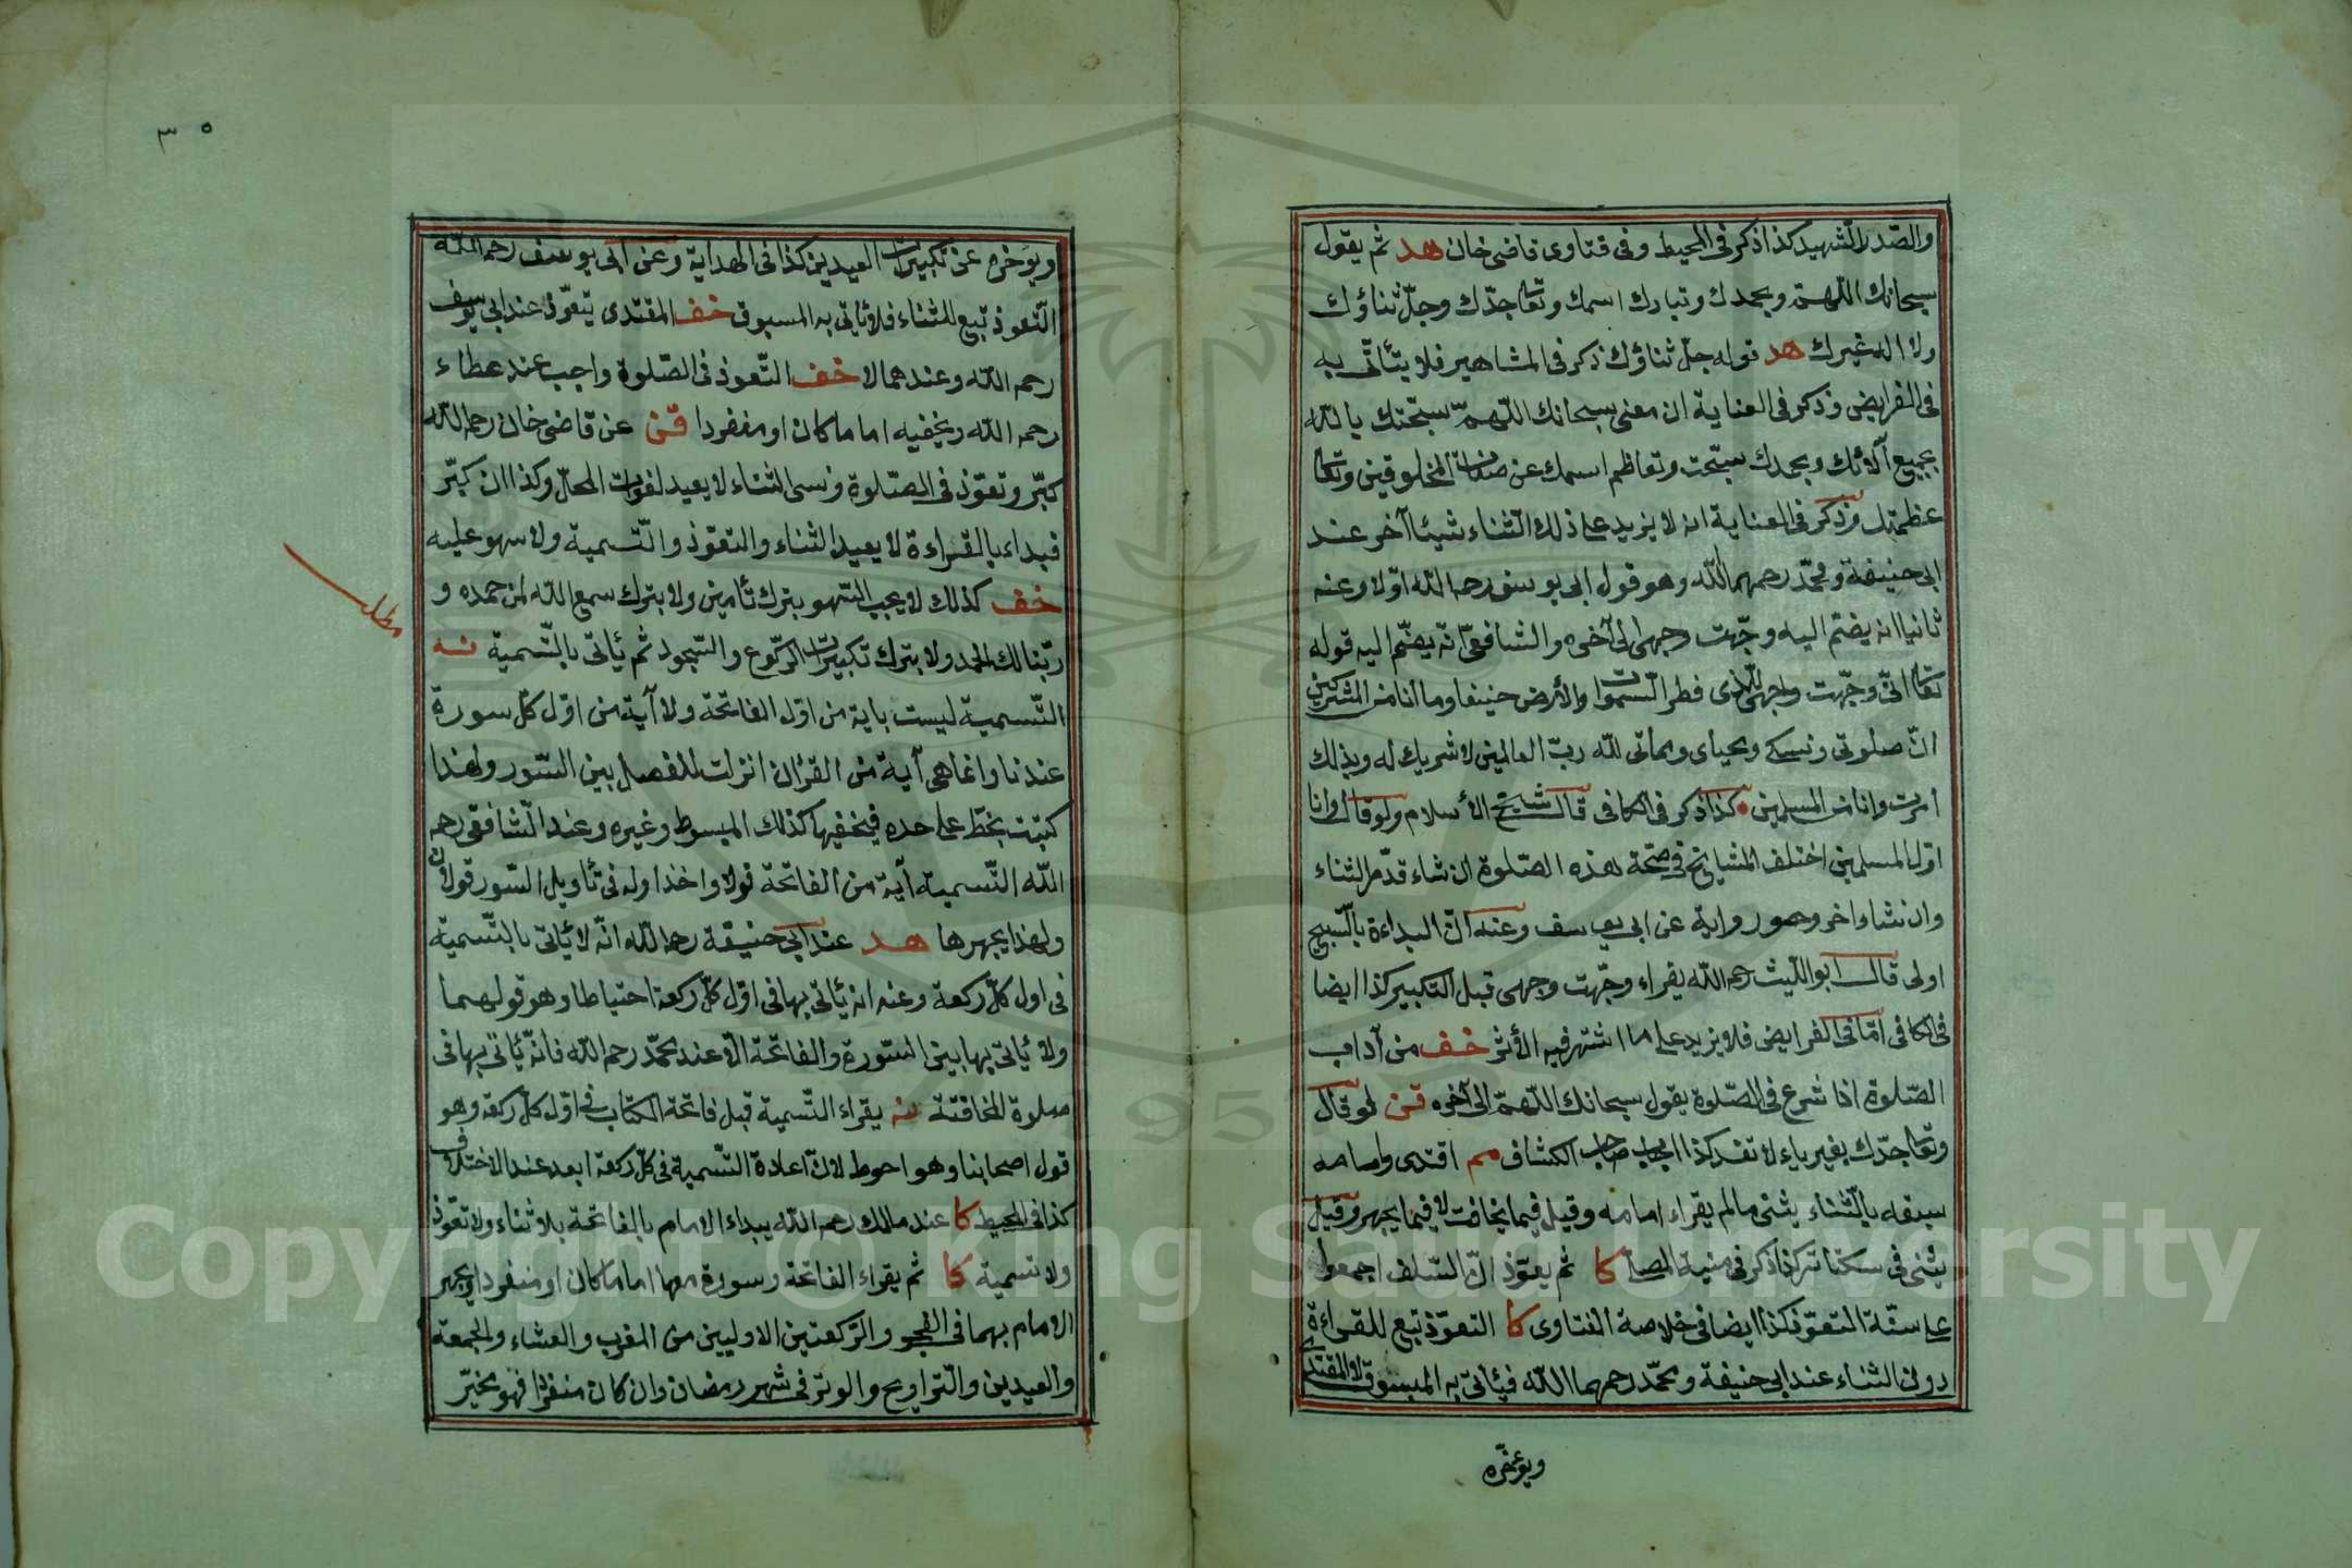 والصّدر الشهيد كذا ذكر فى المحيط وفى فتاوى قاضى خان هد ثم يقول
سبحانك اللهم وبحمدك وتبارك اسمك وتعا جدّك وجلّ ثناؤك
ولا اله غيرك هد قوله جلّ ثناؤك ذكر فى المشاهير فلا يتأتى به
فى الفرايض وذكر فى العناية ان معنى سبحانك اللهمّ سبّحتك يا الله
بجميع آلائك وبحمدك سبّحت وتعاظم اسمك عن صفات المخلوقين وتعا
عظمتك وذكر فى العناية انه لا يزيد على ذلك الثناء شيئا آخر عند
ابى حنيفة ومحمّد رحمهما الله وهو قول ابى يوسف رحمه الله اوّلا وعنه
ثانيا انه يضم اليه وجّهت وجهى الى آخره والشافعىّ انّه يضمّ اليه قوله
تعا انّى وجّهت وجهى للذى فطر السّموات والأرض حنيفا وما انا من المشركين
انّ صلوتى ونسكى ومحياى ومماتى لله ربّ العالمين لا شريك له وبذلك
امرت وانا من المسلمين كذا ذكر فى الكافى قال شيخ الأسلام ولو قال وانا
اوّل المسلمين اختلف المشايخ فى صحّة هذه الصّلوة ان شاء قدّم الثناء
وان شاء اخر وهو رواية عن ابى يوسف وعنه انّ البداءة بالتّسبيح
اولى قال ابو اللّيث رحمه الله يقراء وجّهت وجهى قبل التكبير كذا ايضا
فى الكافى امّا فى الفرايض فلا يزيد على ما اشتهر فيه الأثر خف من آداب
الصّلوة اذا شرع فى الصّلوة يقول سبحانك اللّهمّ الى آخره قن لو قال
وتعا جدّك بغير ياء لا تفسد كذا اجاب صاحب الكشاف مم اقتدى وامامه
سبقه بالثّناء يثنى مالم يقراء امامه وقيل فيما يخافت لا فيما يجهر وقيل
يثنى فى سكتاته كذا ذكر فى منية المصلى كا ثم يعوّذ انّ السّلف اجمعوا
على سنّة التعوّذ كذا ايضا فى خلاصة الفتاوى كا التعوّذ تبع للقراءة
دون الثناء عند ابى حنيفة ومحمّد رحمهما الله فيأتى به المسبوق لا المقتدى
ويؤخّره
٣٥
ويؤخره عن تكبيرات العيدين كذا فى الهداية وعن ابى يوسف رحمه الله
التّعوذ تبع للثناء فلا يأتى به المسبوق خف المقتدى يتعوّذ عند ابى يوسف
رحمه الله وعندهما لا خف التّعوذ فى الصّلوة واجب عند عطاء
رحمه الله ويخفيه اماما كان او منفردا قن عن قاضى خان رحمه الله
كبّر وتعوّذ فى الصّلوة ونسى الثناء لا يعيد لفوات المحلّ وكذا ان كبّر
فبداء بالقراءة لا يعيد الثناء والتعوّذ والتّسمية ولا سهو عليه
خف كذلك لا يجب السّهو بترك تأمين ولا بترك سمع الله لمن حمده و
ربّنا لك الحمد ولا بترك تكبيرات الرّكوع والسّجود ثم يأتى بالتّسمية نه
مطلب
التّسمية ليست باية من اوّل الفاتحة ولا آية من اوّل كلّ سورة
عندنا وانما هى آية من القرآن انزلت للفصل بين السّور ولهذا
كتبت بخطّ على حده فيخفيها كذلك المبسوط وغيره وعند الشّافعى رحمه
الله التّسمية آية من الفاتحة قولا واحدا وله فى تأويل السّور قولان
ولهذا يجهرها هد عند ابى حنيفة رحمه الله انّه لا يأتى بالتّسمية
فى اول كلّ ركعة وعنه انه يأتى بها فى اوّل كلّ ركعة احتياطا وهو قولهما
ولا يأتى بها بين السّورة والفاتحة الّا عند محمّد رحمه الله فانّه يأتى بها فى
صلوة المخافتة نه يقراء التّسمية قبل فاتحة الكتاب فى اوّل كلّ ركعة وهو
قول اصحابنا وهو احوط لانّ اعادة التّسمية فى كلّ ركعة ابعد عند الاختلاف
كذا فى المحيط كا عند مالك رحمه الله يبداء الامام بالفاتحة بلا ثناء ولا تعوّذ
ولا تسمية كا ثم يقراء الفاتحة وسورة معها اماما كان او منفردا ويجهر
الامام بهما فى الفجر والرّكعتين الاوليين من المغرب والعشاء والجمعة
والعيدين والتّراويح والوتر فى شهر رمضان وان كان منفردا فهو مخيّر
Copyright © King Saud University
957